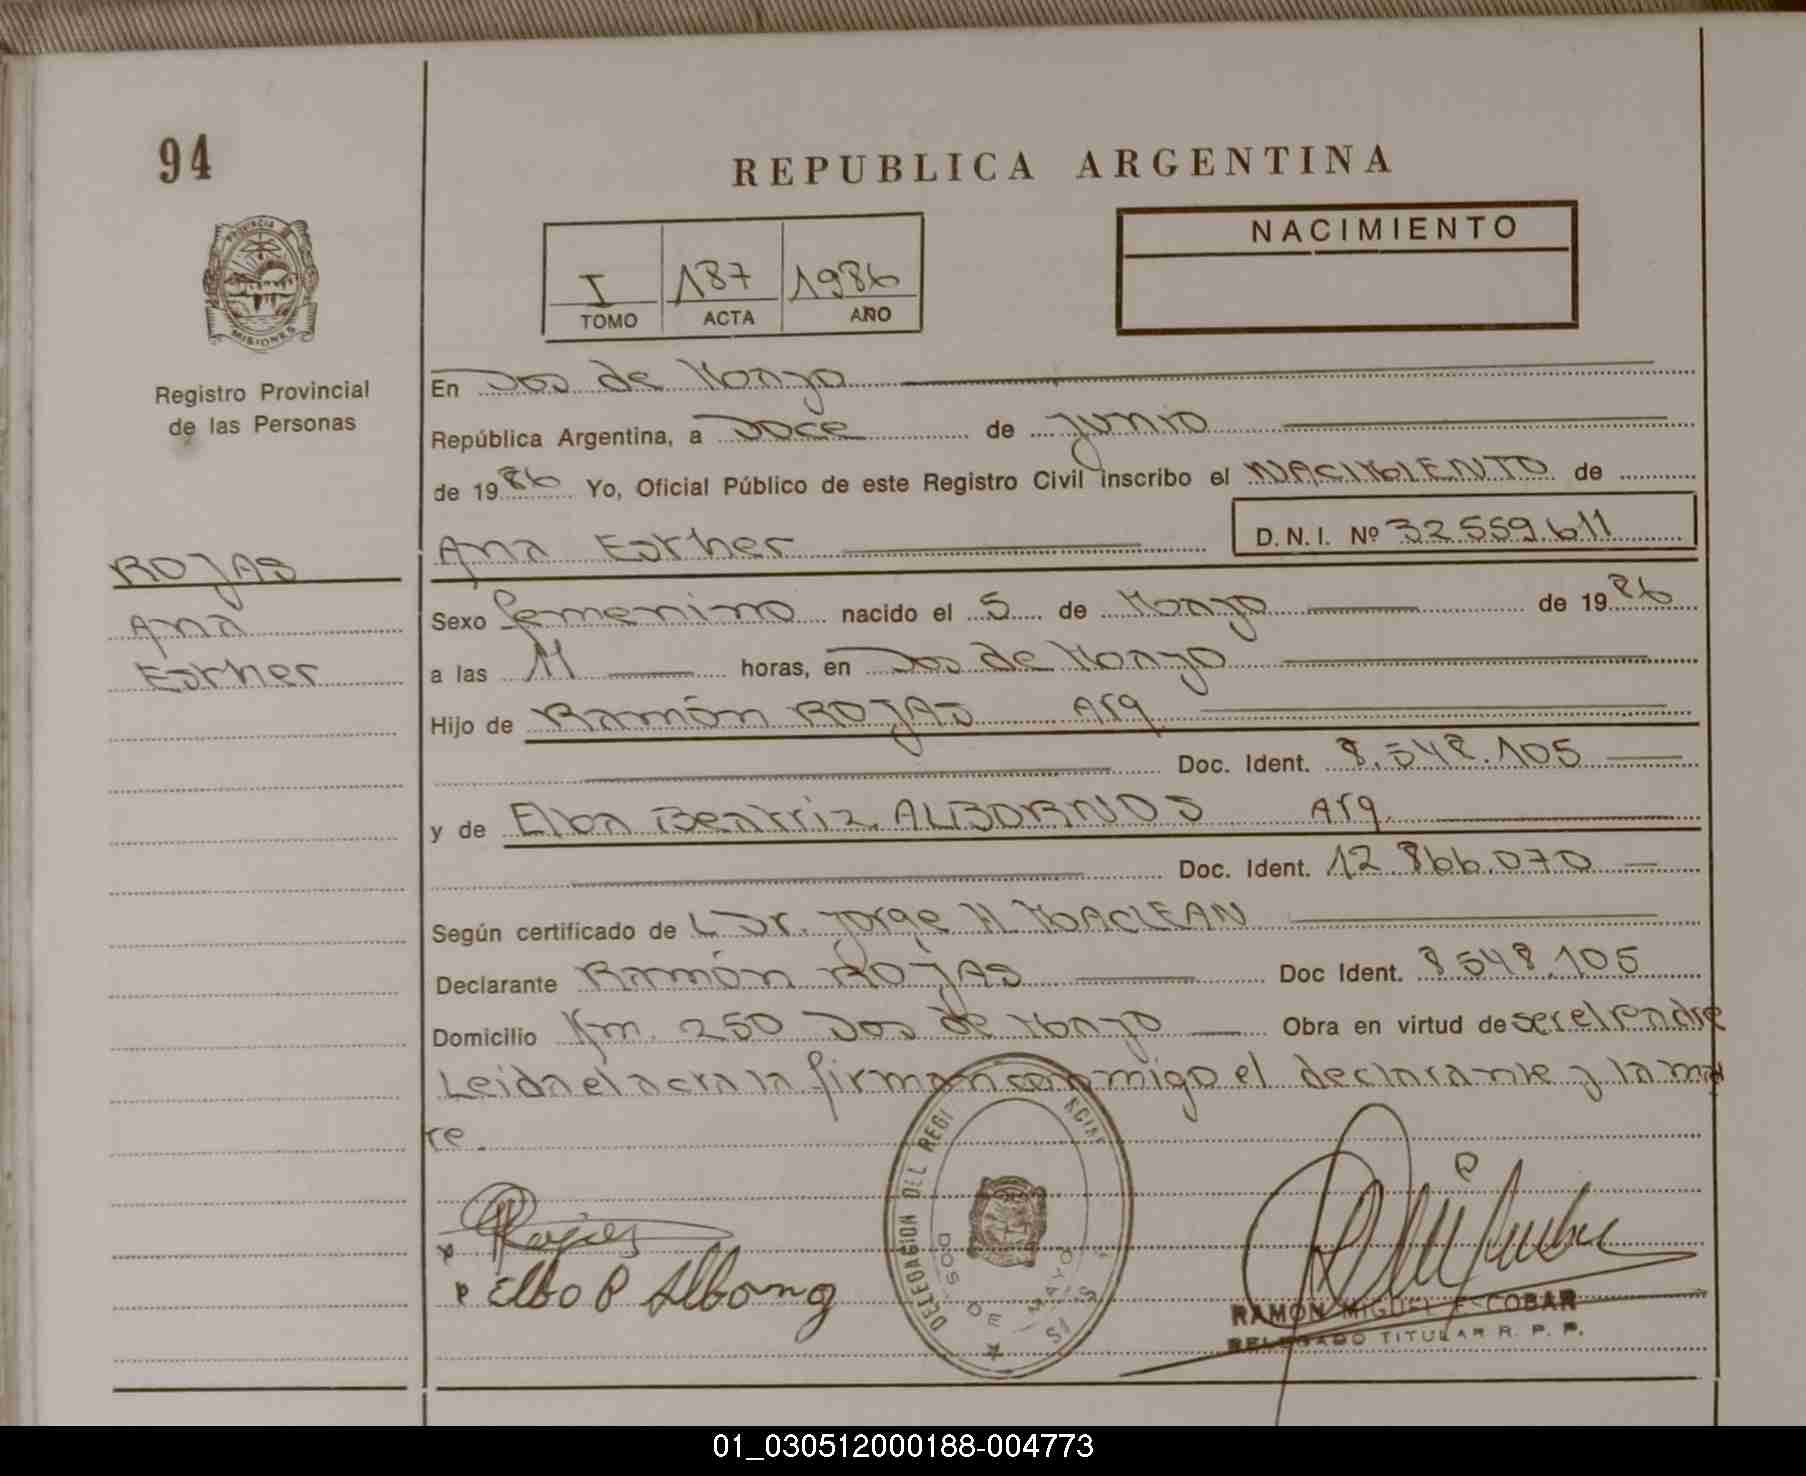 94
REPUBLICA ARGENTINA
NACIMIENTO
I 187 1986
TOMO ACTA AÑO
PROVINCIA
MISIONES
Registro Provincial
de las Personas
En Dos de Mayo
República Argentina, a Doce de Junio
de 1986 Yo, Oficial Público de este Registro Civil inscribo el NACIMIENTO de
Ana Esther D.N.I. Nº 32.559.611
ROJAS
Ana
Esther
Sexo femenino nacido el 5 de Mayo de 1986
a las 11 horas, en Dos de Mayo
Hijo de Ramón ROJAS Arg
Doc. Ident. 8.548.105
y de Elba Beatriz ALBORNOS Arg.
Doc. Ident. 12.866.070
Según certificado de Dr. Jorge H. MACLEAN
Declarante Ramón ROJAS Doc Ident. 8548.105
Domicilio Km. 250 Dos de Mayo Obra en virtud de ser el padre
Leida el acta la firman conmigo el declarante y la mad
re.
x Rojas
Elba B Alborno
DELEGACION DEL REGI
DOS DE MAYO
RAMON MIGUEL ESCOBAR
DELEGADO TITULAR R. P. P.
01_030512000188-004773